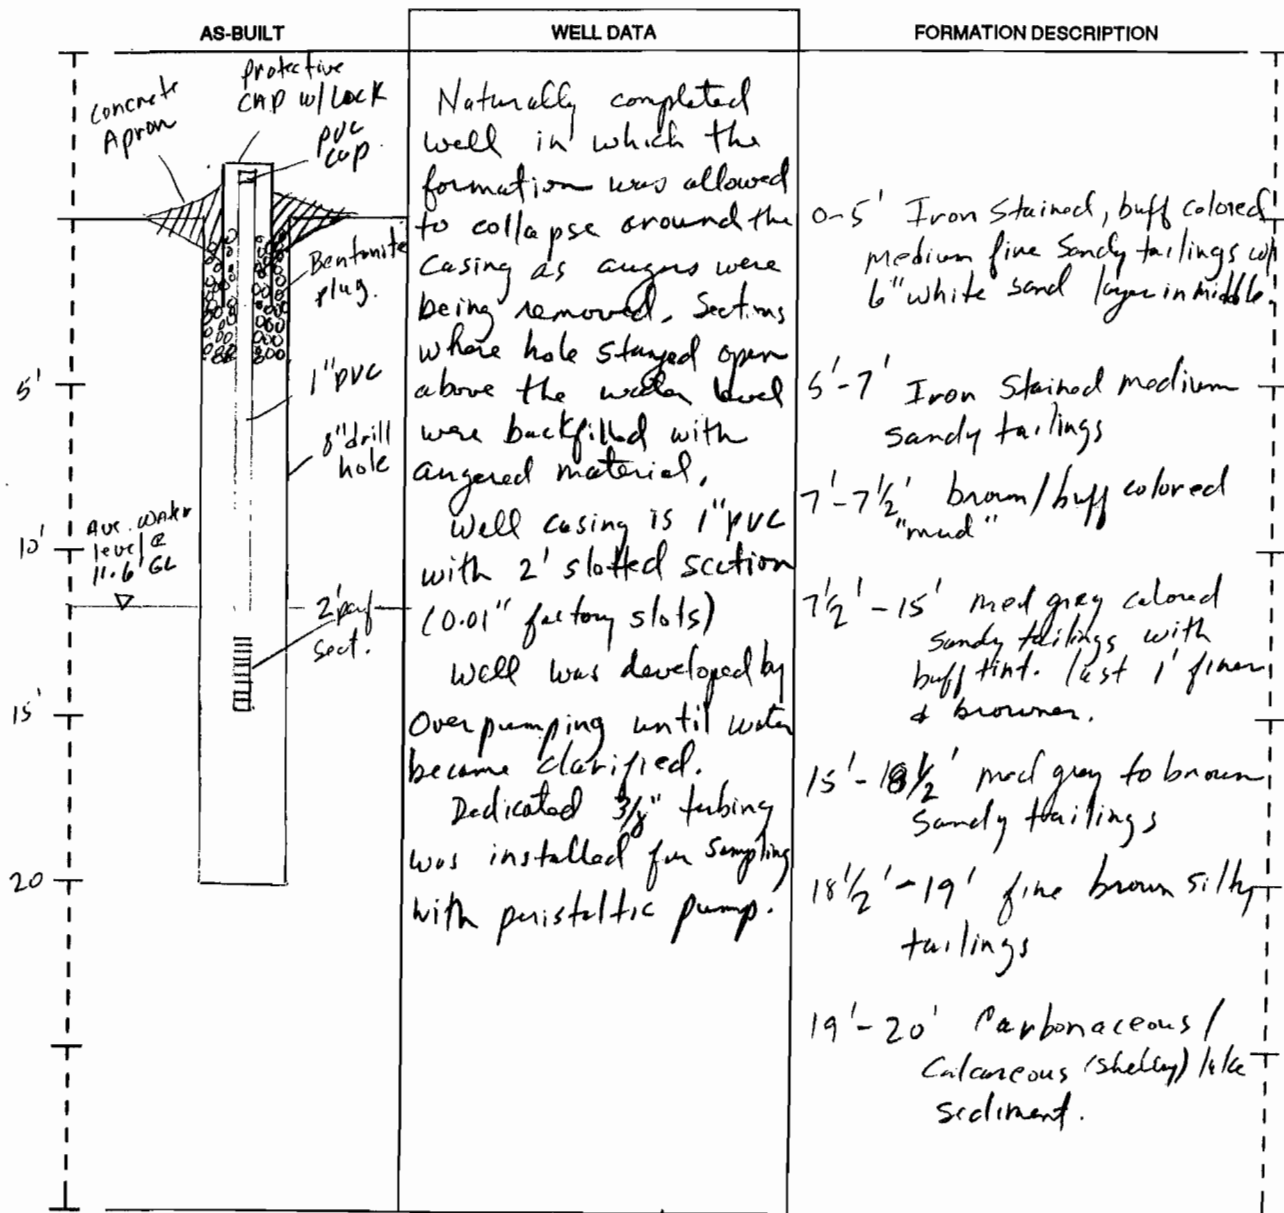 AS-BUILT
WELL DATA
FORMATION DESCRIPTION
Concrete
Apron
protective
CAP w/ Lock
PVC
cap.
Bentonite
plug.
5'
1" PVC
8" drill
hole
Ave. water
level @
11.6' GL
10'
2' perf
sect.
15'
20
Naturally completed
well in which the
formation was allowed
to collapse around the
casing as augers were
being removed. Sections
where hole stayed open
above the water level
were backfilled with
augered material.
Well casing is 1" PVC
with 2' slotted section
(0.01" factory slots)
Well was developed by
overpumping until water
became clarified.
Dedicated 3/8" tubing
was installed for sampling
with peristaltic pump.
0-5' Iron Stained, buff colored
medium fine sandy tailings w/
6" white sand layer in middle.
5'-7' Iron Stained medium
sandy tailings
7'-7½' brown/buff colored
"mud"
7½'-15' med grey colored
sandy tailings with
buff tint. last 1' finer
& browner.
15'-18½' med grey to brown
sandy tailings
18½'-19' fine brown silty
tailings
19'-20' Carbonaceous/
Calcareous (shelly) like
sediment.